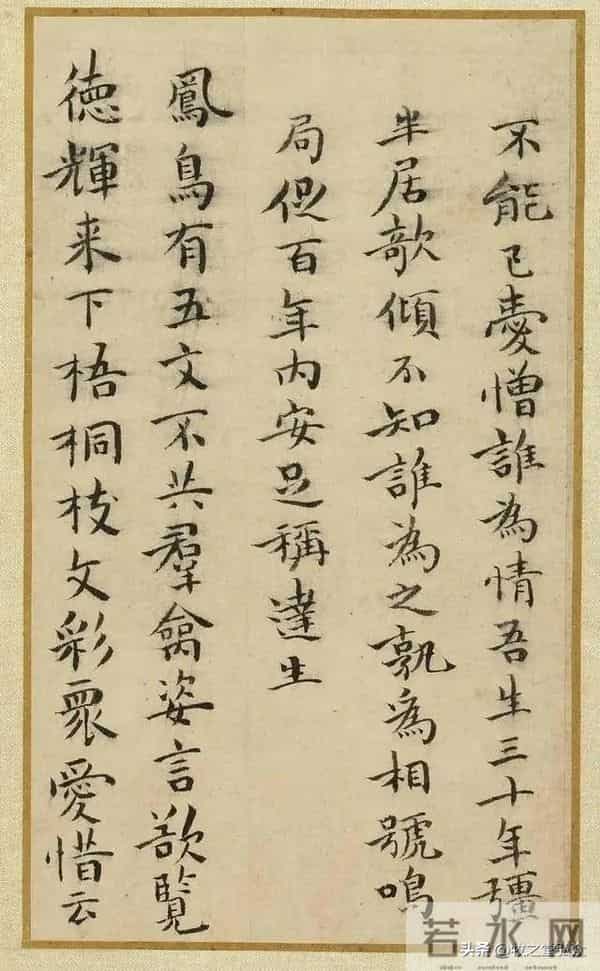 不能已憂憎誰為情吾生三十年彊
半居欹傾不知誰為之孰為相號鳴
局促百年内安足稱達生
鳳鳥有五文不共羣禽姿言欲覽
徳輝来下梧桐枝文彩眾愛惜云
若水网
头条 @牧之堂